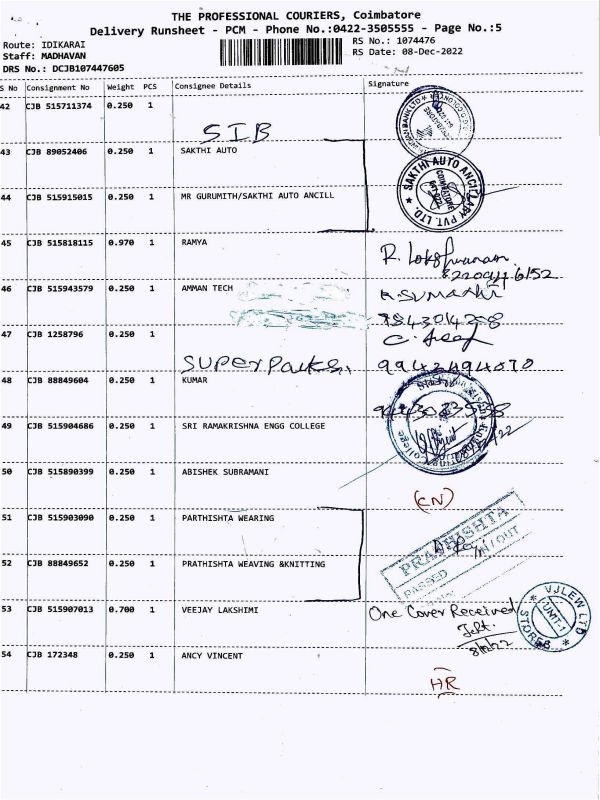 THE PROFESSIONAL COURIERS, Coimbatore
Delivery Runsheet - PCM - Phone No.:0422-3505555 - Page No.:5
Route: IDIKARAI
Staff: MADHAVAN
DRS No.: DCJB107447605
RS No.: 1074476
RS Date: 08-Dec-2022
S No Consignment No Weight PCS Consignee Details Signature
42 CJB 515711374 0.250 1
SIB
43 CJB 89052406 0.250 1 SAKTHI AUTO
44 CJB 515915015 0.250 1 MR GURUMITH/SAKTHI AUTO ANCILL
SAKTHI AUTO ANCILLARY PVT. LTD.
COIMBATORE
45 CJB 515818115 0.970 1 RAMYA
46 CJB 515943579 0.250 1 AMMAN TECH
R. SUMATHI
47 CJB 1258796 0.250 1
SUPER Parks.
9942494070
48 CJB 88849604 0.250 1 KUMAR
49 CJB 515904686 0.250 1 SRI RAMAKRISHNA ENGG COLLEGE
50 CJB 515890399 0.250 1 ABISHEK SUBRAMANI
(CN)
51 CJB 515903090 0.250 1 PARTHISHTA WEARING
PRATHISHTA
PASSED IN / OUT
52 CJB 88849652 0.250 1 PRATHISHTA WEAVING &KNITTING
53 CJB 515907013 0.700 1 VEEJAY LAKSHIMI
One Cover Received
8/12/22
VJLEW LTD
UNIT-1
STORES
54 CJB 172348 0.250 1 ANCY VINCENT
HR